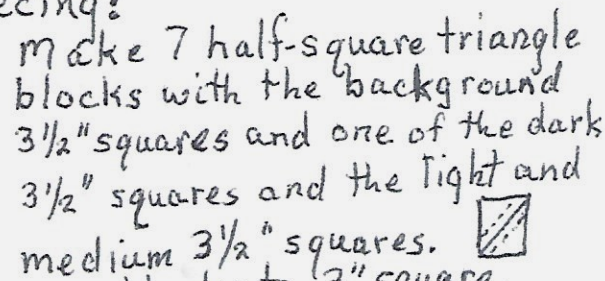 Make 7 half-square triangle
blocks with the background
3 1/2" squares and one of the dark
3 1/2" squares and the light and
medium 3 1/2" squares.